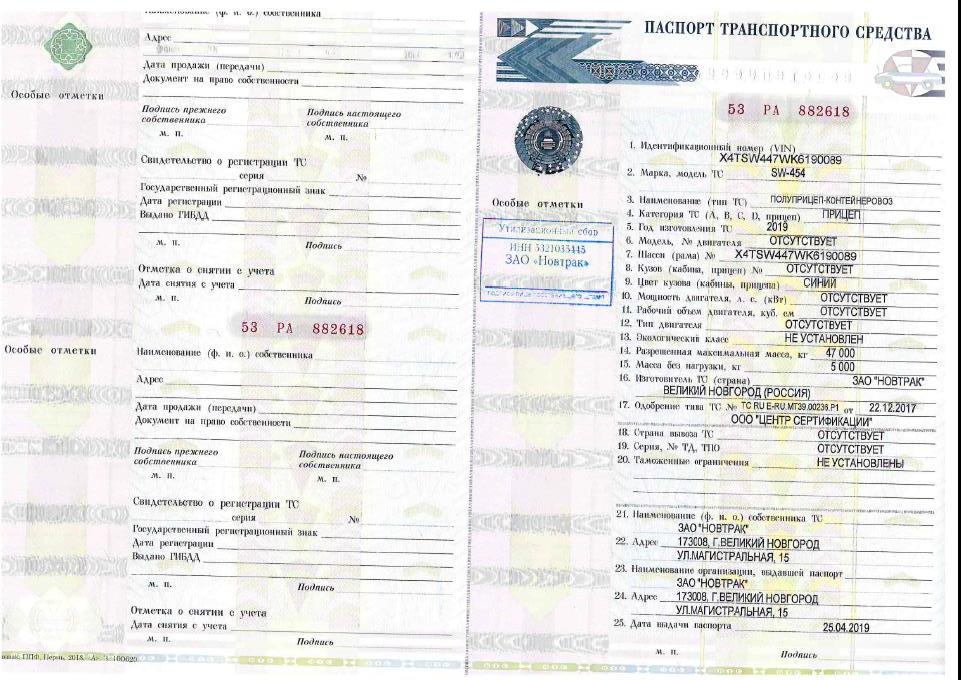 Наименование (ф. и. о.) собственника
Адрес
Дата продажи (передачи)
Документ на право собственности
Особые отметки
Подпись прежнего собственника
Подпись настоящего собственника
м. п.
м. п.
Свидетельство о регистрации ТС
серия №
Государственный регистрационный знак
Дата регистрации
Выдано ГИБДД
м. п.
Подпись
Отметка о снятии с учета
Дата снятия с учета
м. п.
Подпись
53 РА 882618
Особые отметки
Наименование (ф. и. о.) собственника
Адрес
Дата продажи (передачи)
Документ на право собственности
Подпись прежнего собственника
Подпись настоящего собственника
м. п.
м. п.
Свидетельство о регистрации ТС
серия №
Государственный регистрационный знак
Дата регистрации
Выдано ГИБДД
м. п.
Подпись
Отметка о снятии с учета
Дата снятия с учета
м. п.
Подпись
ППФ, Пермь, 2018, «А»
ПАСПОРТ ТРАНСПОРТНОГО СРЕДСТВА
53 РА 882618
1. Идентификационный номер (VIN)
X4TSW447WK6190089
2. Марка, модель ТС SW-454
3. Наименование (тип ТС) ПОЛУПРИЦЕП-КОНТЕЙНЕРОВОЗ
4. Категория ТС (А, В, С, D, прицеп) ПРИЦЕП
5. Год изготовления ТС 2019
6. Модель, № двигателя ОТСУТСТВУЕТ
7. Шасси (рама) № X4TSW447WK6190089
8. Кузов (кабина, прицеп) № ОТСУТСТВУЕТ
9. Цвет кузова (кабины, прицепа) СИНИЙ
10. Мощность двигателя, л. с. (кВт) ОТСУТСТВУЕТ
11. Рабочий объем двигателя, куб. см ОТСУТСТВУЕТ
12. Тип двигателя ОТСУТСТВУЕТ
13. Экологический класс НЕ УСТАНОВЛЕН
14. Разрешенная максимальная масса, кг 47 000
15. Масса без нагрузки, кг 5 000
16. Изготовитель ТС (страна) ЗАО "НОВТРАК"
ВЕЛИКИЙ НОВГОРОД (РОССИЯ)
17. Одобрение типа ТС № ТС RU E-RU.МТ39.00236.Р1 от 22.12.2017
ООО "ЦЕНТР СЕРТИФИКАЦИИ"
18. Страна вывоза ТС ОТСУТСТВУЕТ
19. Серия, № ТД, ТПО ОТСУТСТВУЕТ
20. Таможенные ограничения НЕ УСТАНОВЛЕНЫ
21. Наименование (ф. и. о.) собственника ТС
ЗАО "НОВТРАК"
22. Адрес 173008, Г.ВЕЛИКИЙ НОВГОРОД
УЛ.МАГИСТРАЛЬНАЯ, 15
23. Наименование организации, выдавшей паспорт
ЗАО "НОВТРАК"
24. Адрес 173008, Г.ВЕЛИКИЙ НОВГОРОД
УЛ.МАГИСТРАЛЬНАЯ, 15
25. Дата выдачи паспорта 25.04.2019
м. п.
Подпись
Особые отметки
Утилизационный сбор
ИНН 5321035445
ЗАО «Новтрак»